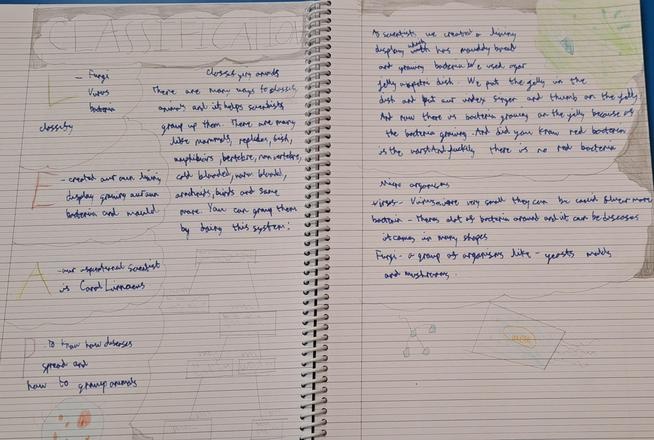 CLASSIFICATION
L
- Fungi
Virus
bacteria
classify
E
- created our own living
display growing our own
bacteria and mould.
A
- our inspirational scientist
is Carol Linnaeus
P
- to know how diseases
spread and
how to group animals
classifying animals
There are many ways to classify
animals and it helps scientists
group up them. There are many
like mammals, reptiles, fish,
amphibians,
cold blooded, warm blooded,
birds and some
more. You can group them
by doing this system:
As scientists we created a living
display which has mouldy bread
and growing bacteria We used agar
jelly dish. We put the jelly in the
dish and put our index finger and thumb on the jelly
And now there is bacteria growing on the jelly because of
the bacteria growing. And did you know red bacteria
is the worst And luckily there is no red bacteria
Micro organisms
virus- very small they can be
bacteria - Theres alot of bacteria around and it can be diseases
it comes in many shapes
Fungi - a group of organisms like - yeasts molds
and mushrooms.